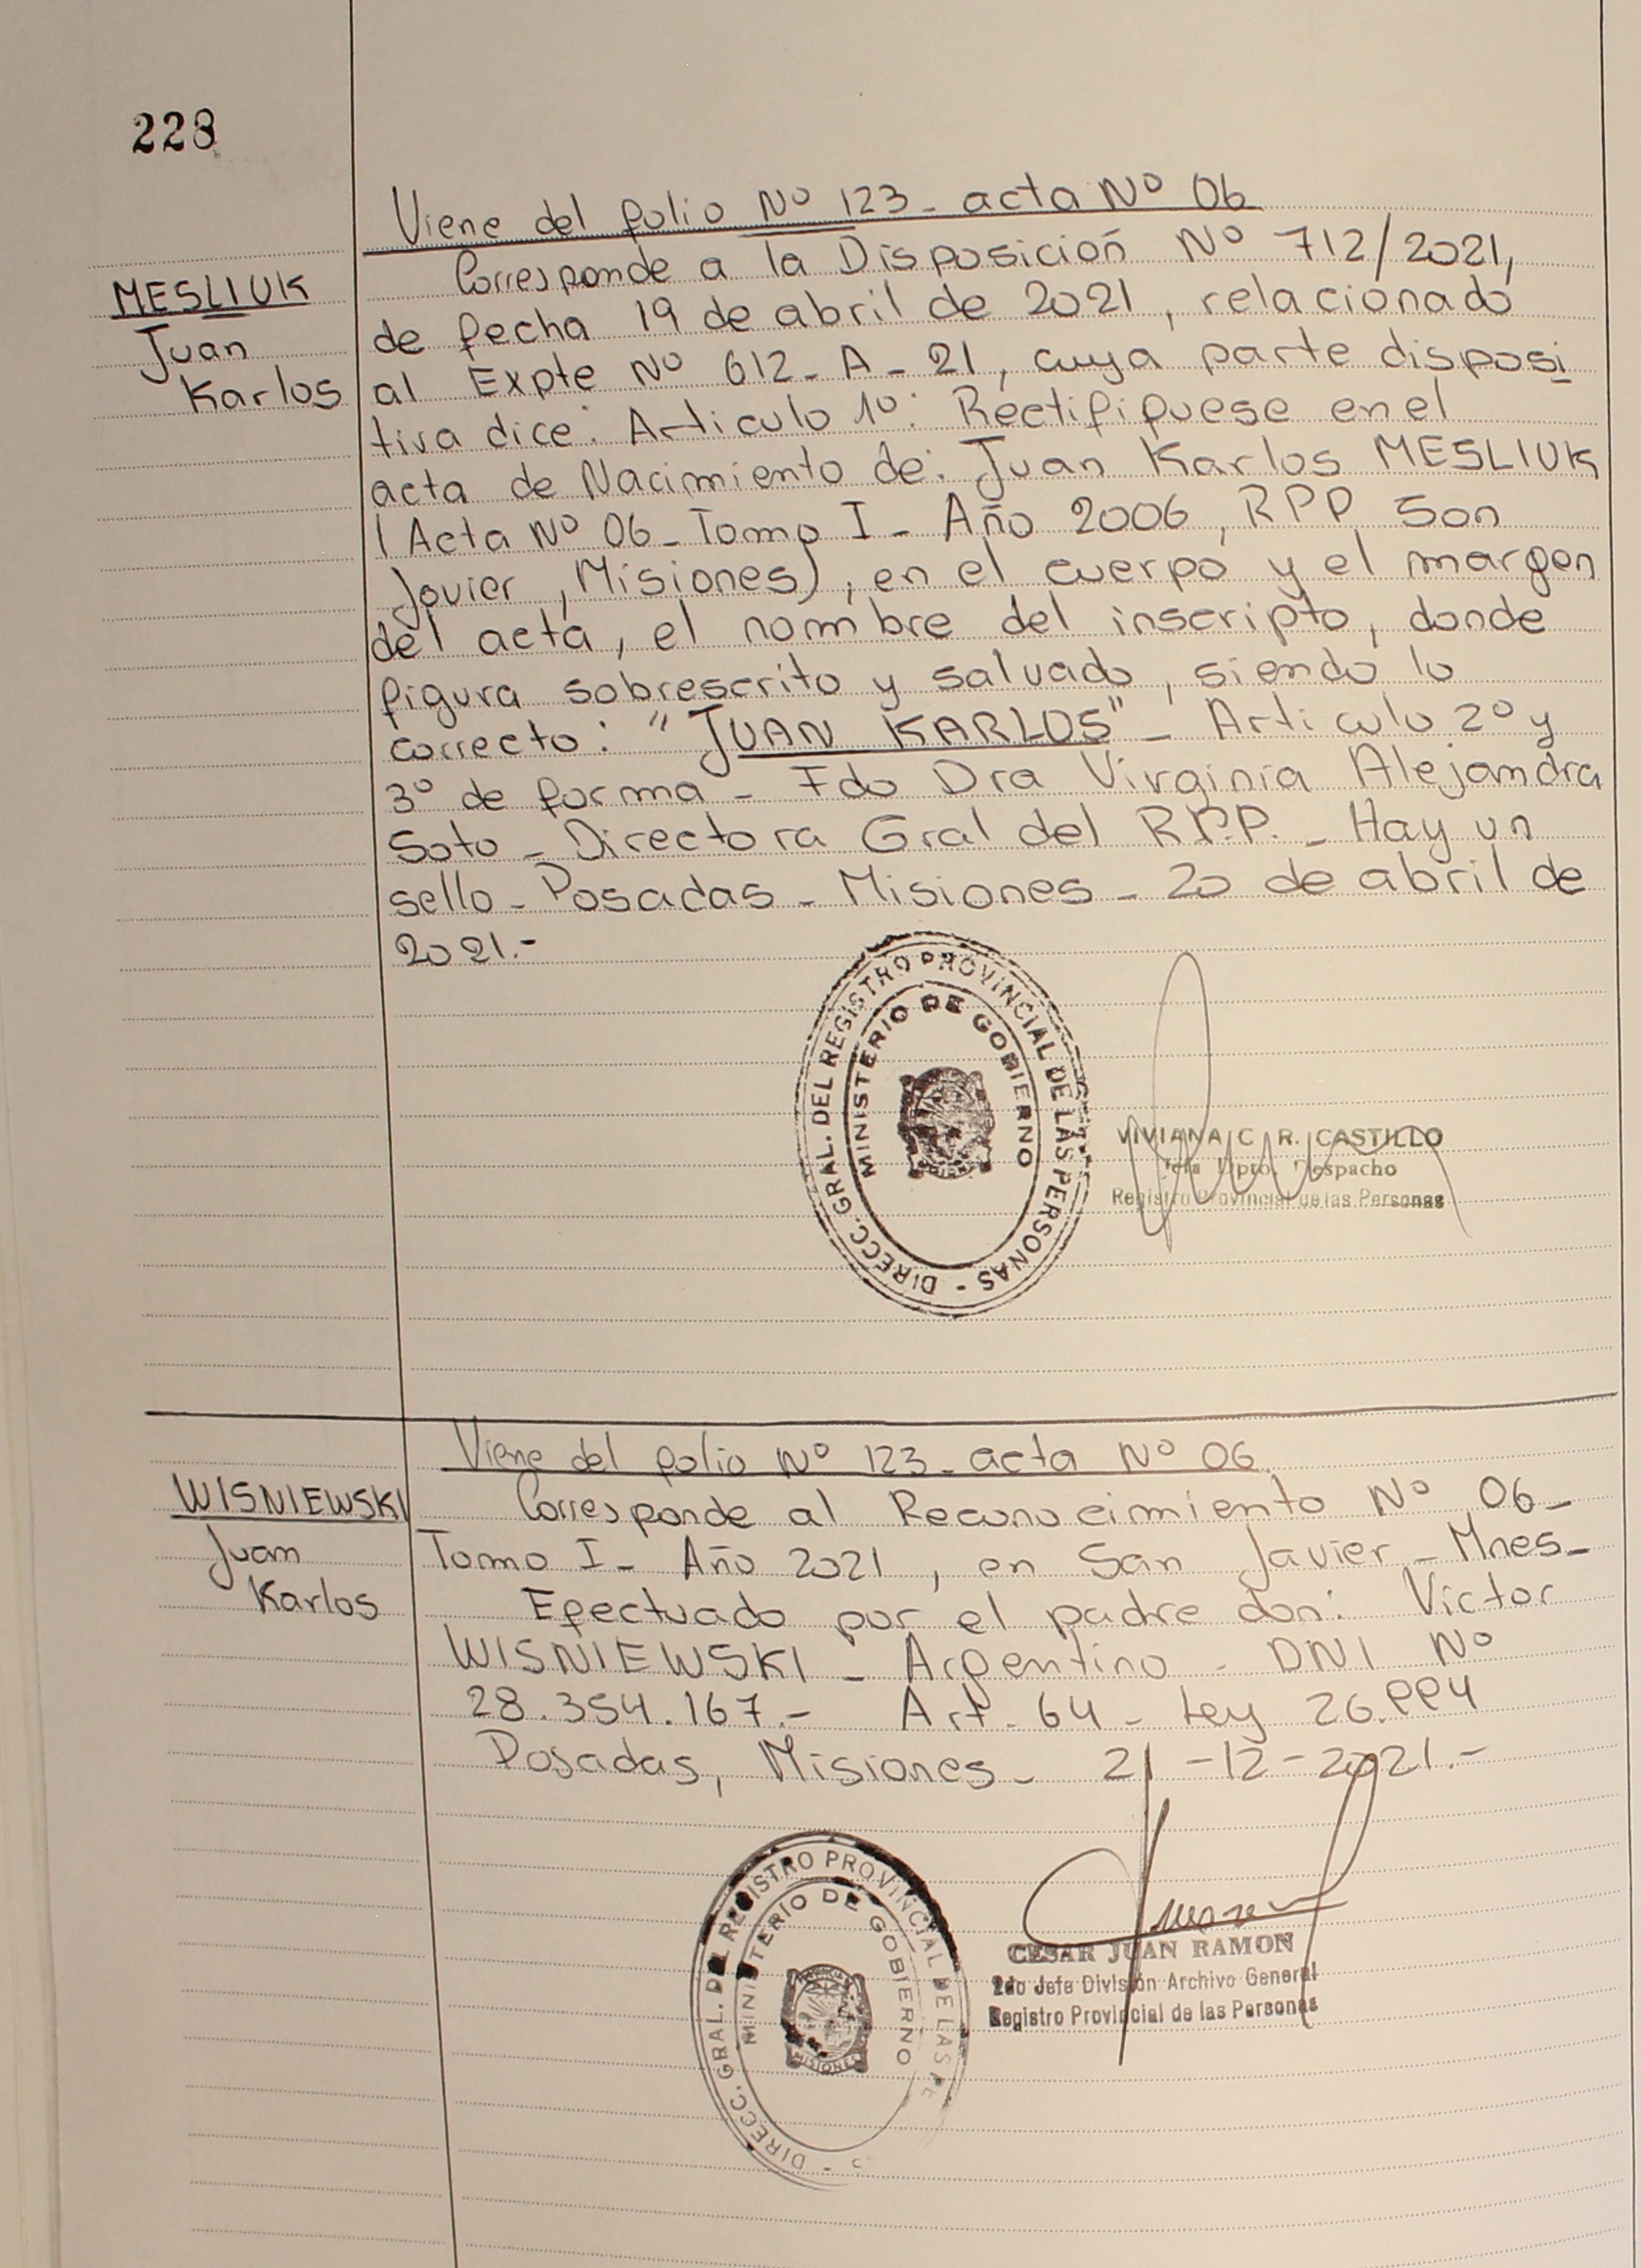 228
Viene del folio Nº 123 - acta Nº 06
MESLIUK
Juan
Karlos
Corresponde a la Disposición Nº 712/2021,
de fecha 19 de abril de 2021, relacionado
al Expte Nº 612 - A - 21, cuya parte disposi
tiva dice: Articulo 1º: Rectifiquese en el
acta de Nacimiento de: Juan Karlos MESLIUK
(Acta Nº 06 - Tomo I - Año 2006, RPP San
Javier, Misiones), en el cuerpo y el margen
del acta, el nombre del inscripto, donde
figura sobrescrito y salvado, siendo lo
correcto: "JUAN KARLOS" - Articulo 2º y
3º de forma - Fdo Dra Virginia Alejandra
Soto - Directora Gral del R.P.P. - Hay un
sello - Posadas - Misiones - 20 de abril de
2021.-
DIRECC. GRAL. DEL REGISTRO PROVINCIAL DE LAS PERSONAS -
MINISTERIO DE GOBIERNO
VIVIANA C. R. CASTILLO
Jefa Dpto. Despacho
Registro Provincial de las Personas
Viene del folio Nº 123 - acta Nº 06
WISNIEWSKI
Juan
Karlos
Corresponde al Reconocimiento Nº 06 -
Tomo I - Año 2021, en San Javier - Mnes -
Efectuado por el padre don: Victor
WISNIEWSKI - Argentino - DNI Nº
28.354.167.- Art. 64 - Ley 26.994
Posadas, Misiones - 21-12-2021.-
DIRECC. GRAL. DEL REGISTRO PROVINCIAL DE LAS PE
MINISTERIO DE GOBIERNO
MISIONES
CESAR JUAN RAMON
2do Jefe División Archivo General
Registro Provincial de las Personas